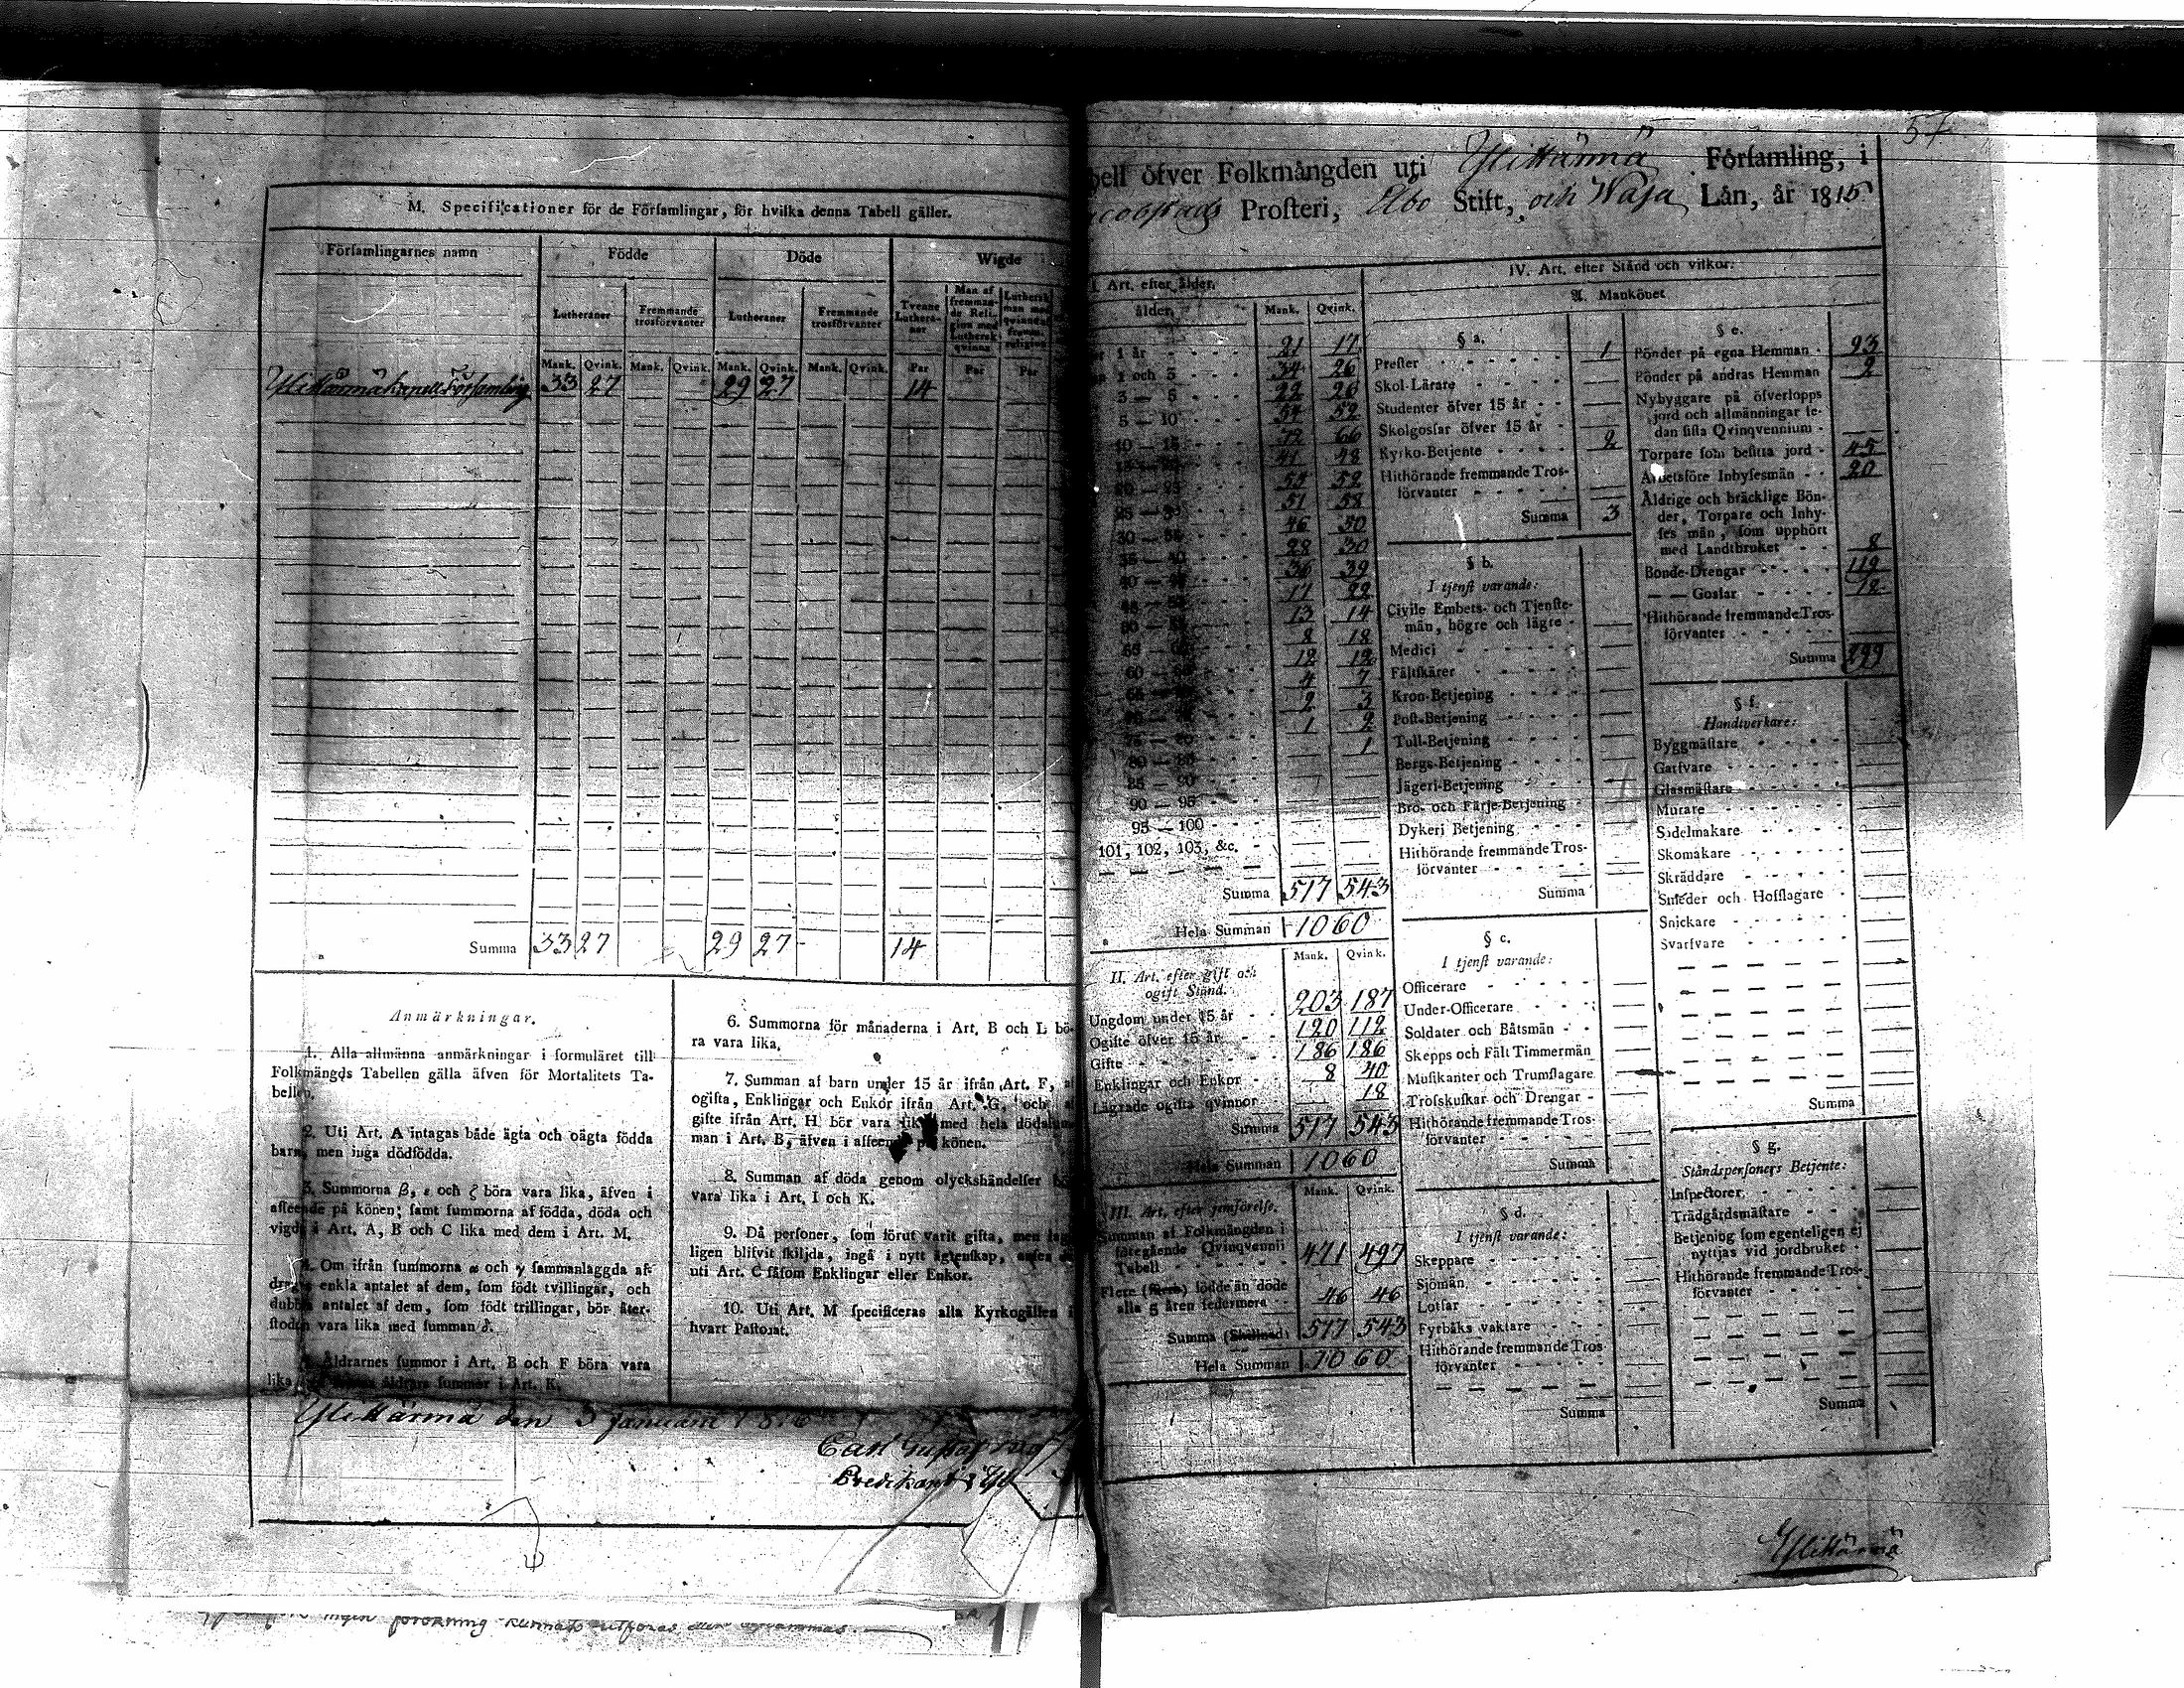 M. Specificationer för de Församlingar, för hvilka denna Tabell gäller.
Församlingarnes namn
Födde
Döde
Wigde
Lutheraner
Fremmande trosförvanter
Lutheraner
Fremmande trosförvanter
Tvenne Lutheraner
Man af fremmande Religion med Luthersk qvinna
Luthersk man med qvinna af fremm. religion
Mank. Qvink. Mank. Qvink. Mank. Qvink. Mank. Qvink. Par Par Par
Ylihärmä Kapells Församling 33 27 29 27 14
Summa 33 27 29 27 14
Anmärkningar.
1. Alla allmänna anmärkningar i formuläret till
Folkmängds Tabellen gälla äfven för Mortalitets Ta-
bellen.
2. Uti Art. A intagas både ägta och oägta födda
barn, men inga dödfödda.
3. Summorna β, ε och ζ böra vara lika, äfven i
afseende på könen; samt summorna af födda, döda och
vigda i Art. A, B och C lika med dem i Art. M.
4. Om ifrån summorna α och γ sammanlaggda af-
drages enkla antalet af dem, som födt tvillingar, och
dubbla antalet af dem, som födt trillingar, bör åter-
stoden vara lika med summan δ.
Åldrarnes summor i Art. B och F böra vara
lika åldrars summor i Art. K.
6. Summorna för månaderna i Art. B och L bö-
ra vara lika.
7. Summan af barn under 15 år ifrån Art. F, af
ogifta, Enklingar och Enkor ifrån Art. G, och af
gifte ifrån Art. H bör vara lika med hela dödssum-
man i Art. B, äfven i afseende på könen.
8. Summan af döda genom olyckshändelser bör
vara lika i Art. I och K.
9. Då personer, som förut varit gifta, men lag-
ligen blifvit skiljda, ingå i nytt ägtenskap, anses de
uti Art. C såsom Enklingar eller Enkor.
10. Uti Art. M specificeras alla Kyrkogällen i
hvart Pastorat.
Ylihärmä den 3 Januarii 1816
Carl Gustaf
Predikant i Yli
ingen förökning kunnat utföras
57
bell öfver Folkmängden uti Ylihärmä Församling, i
acobstads Prosteri, Åbo Stift, och Wasa Län, år 1815
I. Art. efter ålder.
ålder. Mank. Qvink.
1 år 21 17
1 och 3 34 26
3 — 5 22 26
5 — 10 54 52
10 — 15 72 66
41 48
20 — 25 55 52
25 — 30 51 58
30 — 35 46 50
35 — 40 28 30
40 — 45 36 39
17 22
13 14
8 18
60 — 12 12
4 7
2 3
1 2
80 — 85 1
85 — 90
90 — 95
95 — 100
101, 102, 103, &c.
Summa 517 543
Hela Summan 1060
II. Art. efter gift och ogift Stånd. Mank. Qvink.
Ungdom under 15 år 203 187
Ogifte öfver 15 år 120 112
Gifte 186 186
Enklingar och Enkor 8 40
Lägrade ogifta qvinnor 18
Summa 517 543
Hela Summan 1060
III. Art. efter jemförelse. Mank. Qvink.
Summan af Folkmängden i
föregående Qvinqvennii
Tabell 471 497
Flere (färre) födde än döde
alla 5 åren sedermera 46 46
Summa (Skillnad) 517 543
Hela Summan 1060
IV. Art. efter Stånd och vilkor.
A. Mankönet
§ a.
Prester 1
Skol-Lärare
Studenter öfver 15 år
Skolgossar öfver 15 år
Kyrko-Betjente 2
Hithörande fremmande Tros-
förvanter
Summa 3
§ b.
I tjenst varande:
Civile Embets- och Tjenste-
män, högre och lägre
Medici
Fältskärer
Kron-Betjening
Post-Betjening
Tull-Betjening
Bergs-Betjening
Jägeri-Betjening
Bro- och Färje-Betjening
Dykeri Betjening
Hithörande fremmande Tros-
förvanter
Summa
§ c.
I tjenst varande:
Officerare
Under-Officerare
Soldater och Båtsmän
Skepps och Fält Timmermän
Musikanter och Trumslagare
Trosskuskar och Drengar
Hithörande fremmande Tros-
förvanter
Summa
§ d.
I tjenst varande:
Skeppare
Sjömän
Lotsar
Fyrbåks vaktare
Hithörande fremmande Tros-
förvanter
Summa
§ e.
Bönder på egna Hemman 93
Bönder på andras Hemman 2
Nybyggare på öfverlopps
jord och allmänningar se-
dan sista Qvinqvennium
Torpare som besitta jord 45
Arbetsföre Inhysesmän 20
Åldrige och bräcklige Bön-
der, Torpare och Inhy-
ses män, som upphört
med Landtbruket 8
Bonde-Drengar 119
— — Gossar 12
Hithörande fremmande Tros-
förvanter
Summa 299
§ f.
Handtverkare:
Byggmästare
Garfvare
Glasmästare
Murare
Sadelmakare
Skomakare
Skräddare
Smeder och Hofslagare
Snickare
Svarfvare
Summa
§ g.
Ståndspersoners Betjente:
Inspectorer
Trädgårdsmästare
Betjening som egenteligen ej
nyttjas vid jordbruket
Hithörande fremmande Tros-
förvanter
Summa
Ylihärmä